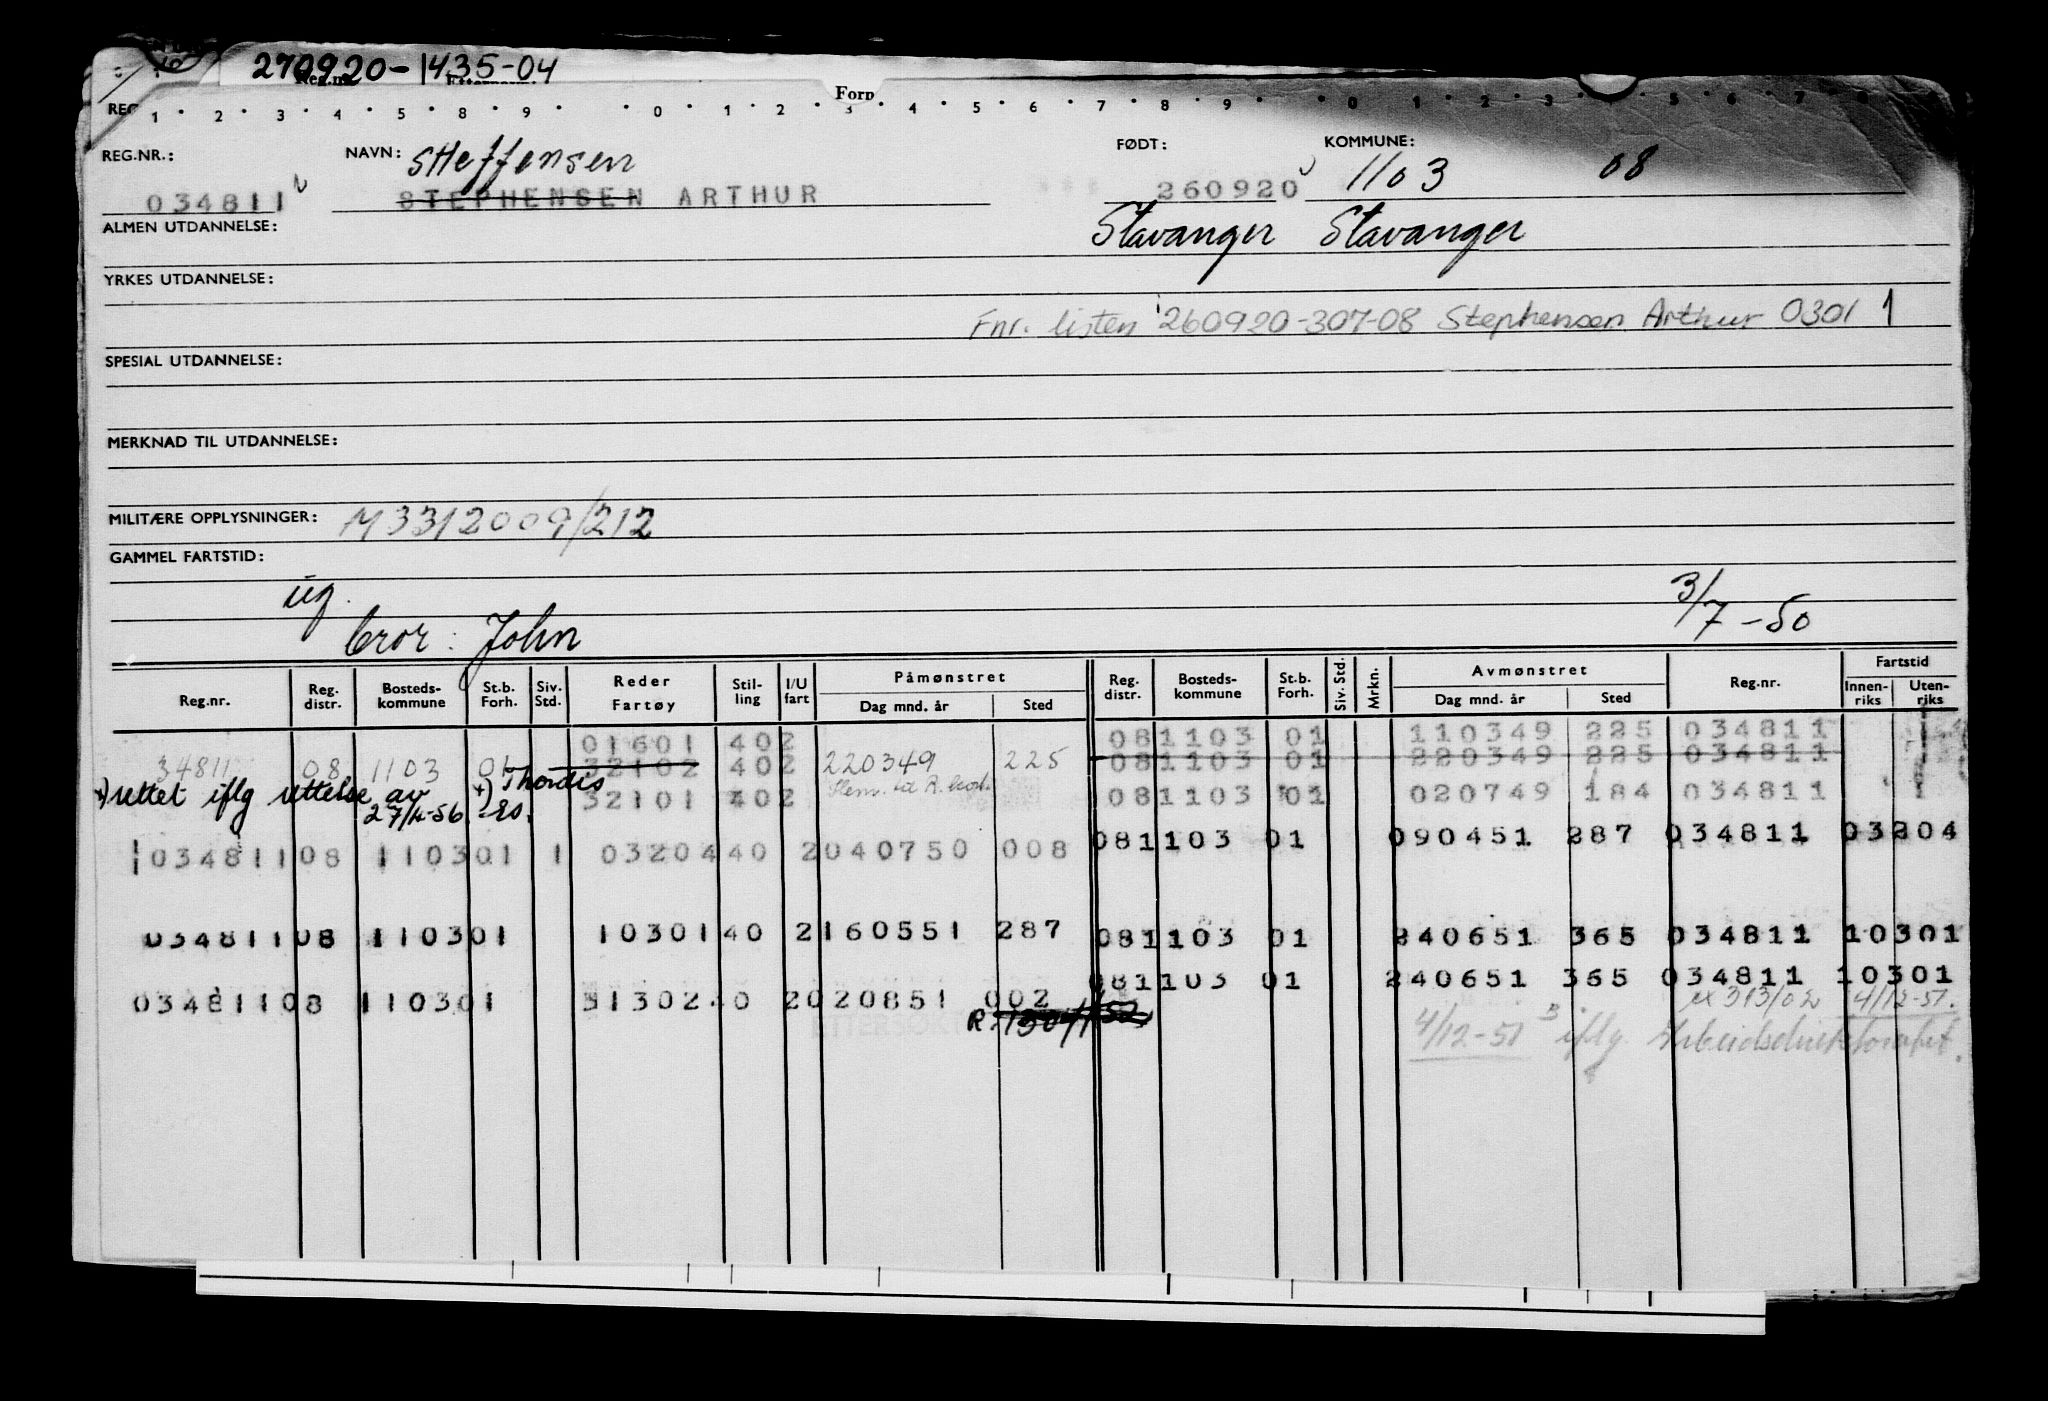 270920-1435-04
Reg.nr.
Forn
REG
1 2 3 4 5 8 9 0 1 2 3 4 5 6 7 8 9 0 1 2 3 4 5 6 7 8
REG.NR.: NAVN: FØDT: KOMMUNE:
Steffensen 1103 08
034811 STEPHENSEN ARTHUR 260920
ALMEN UTDANNELSE: Stavanger Stavanger
YRKES UTDANNELSE:
Fnr. listen 260920-307-08 Stephensen Arthur 0301 1
SPESIAL UTDANNELSE:
MERKNAD TIL UTDANNELSE:
MILITÆRE OPPLYSNINGER: M3312009/212
GAMMEL FARTSTID:
ug. 3/7-50
bror: John
Reg.nr. Reg. distr. Bosteds-kommune St.b. Forh. Siv. Std. Reder Fartøy Stil-ling I/U fart Påmønstret Dag mnd. år Sted Reg. distr. Bosteds-kommune St.b. Forh. Siv. Std. Mrkn. Avmønstret Dag mnd. år Sted Reg.nr. Fartstid Innen-riks Uten-riks
01601 402 081103 01 110349 225 034811
34811 08 1103 01 32102 402 220349 225 081103 01 220349 225 034811
+) rettet iflg rettelse av 27/4-56 +) Thordis 32101 402 081103 01 020749 184 034811
034811 08 1103 01 1 03204 40 2 040750 008 081103 01 090451 287 034811 03204
034811 08 1103 01 10301 40 2 160551 287 081103 01 240651 365 034811 10301
081103 01 240651 365 034811 10301
034811 08 1103 01 31302 40 2 020851 002 313/02 4/12-51.
4/12-51 iflg. Arbeidsdirektoratet.